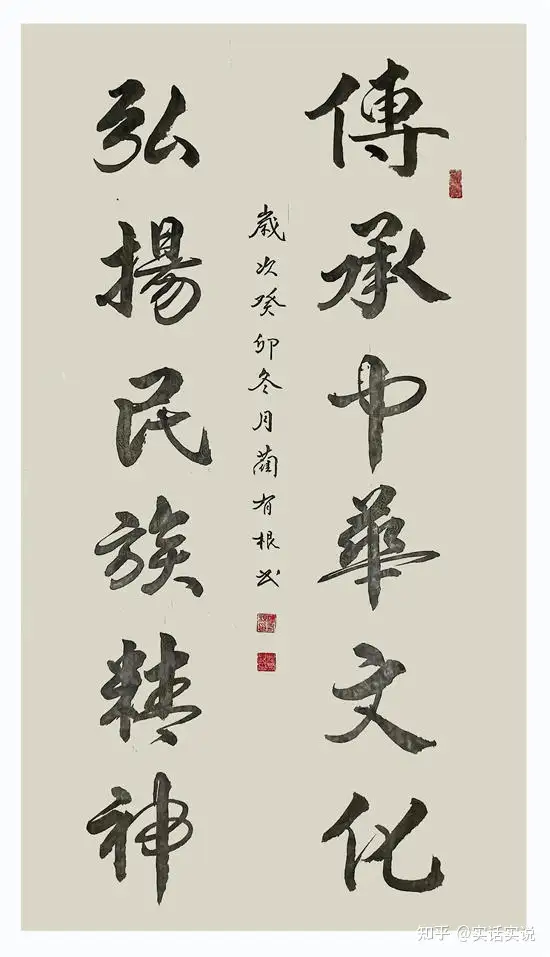 傳承中華文化
弘揚民族精神
歲次癸卯冬月藺有根书
知乎 @实话实说